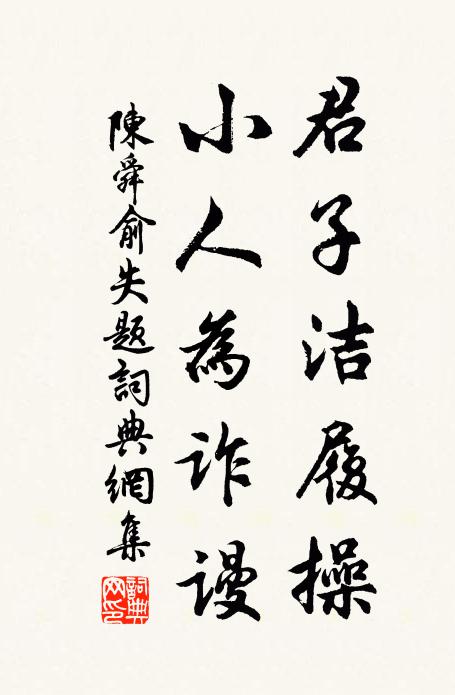 君子洁履操
小人為诈謾
陳舜俞失题詞典網集
詞典網印